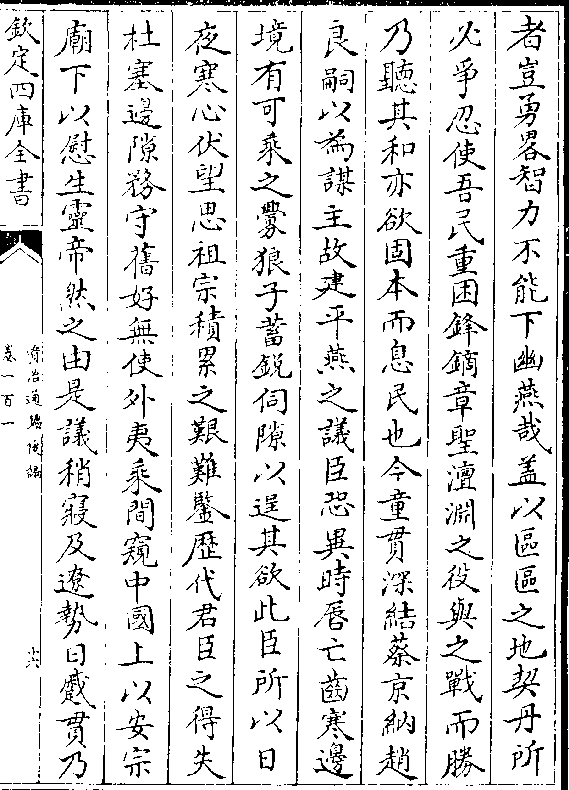 者豈勇畧智力不能下幽燕哉盖以區區之地契丹所
必爭忍使吾民重困鋒鏑章聖澶淵之役與之戰而勝
乃聽其和亦欲固本而息民也今童貫深結蔡京納趙
良嗣以為謀主故建平燕之議臣恐異時唇亡齒寒邊
境有可乘之釁狼子蓄銳伺隙以逞其欲此臣所以日
夜寒心伏望思祖宗積累之艱難鑒歴代君臣之得失
杜塞邊隙務守舊好無使外夷乘間窺中國上以安宗
廟下以慰生靈帝然之由是議稍寢及遼勢日蹙貫乃
欽定四庫全書
資治通鑑後編
卷一百一
十六